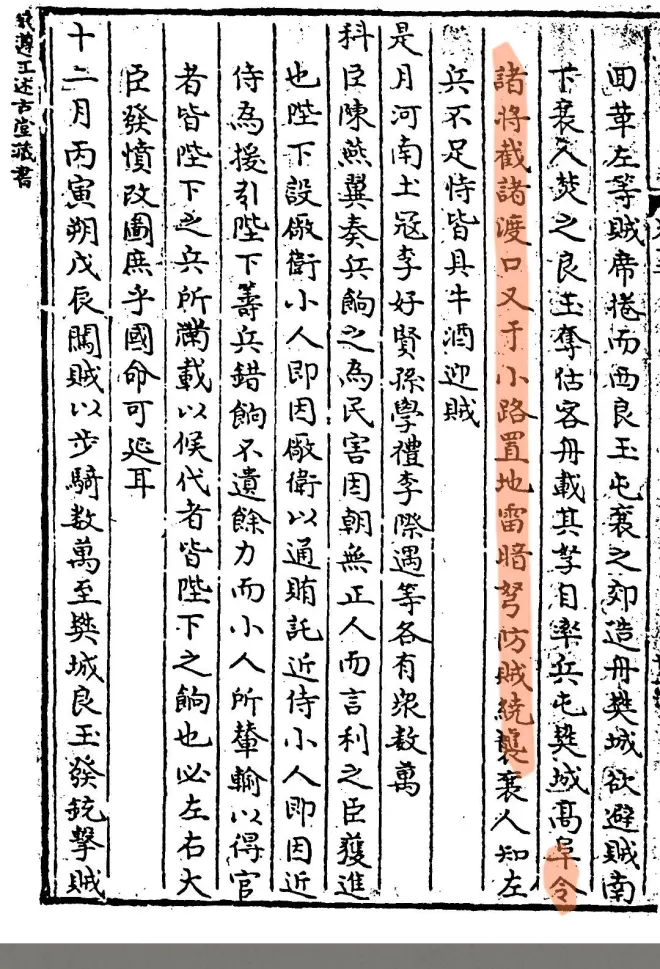 回革左等賊席捲而西良玉屯襄之郊造舟樊城欲避賊南
下襄人焚之良玉奪估客舟載其孥自率兵屯樊城髙阜令
諸将截諸渡口又于小路置地雷暗弩防賊繞襲襄人知左
兵不足恃皆具牛酒迎賊
是月河南土冦李好賢孫學禮李際遇等各有衆数萬
科臣陳燕翼奏兵餉之為民害因朝無正人而言利之臣獲進
也陛下設廠衛小人即因廠衛以通賄託近侍小人即因近
侍為援引陛下籌兵錯餉不遺餘力而小人所輦輸以得官
者皆陛下之兵所滿載以候代者皆陛下之餉也必左右大
臣發憤改圖庶乎國命可延耳
十二月丙寅朔戊辰闖賊以步騎数萬至樊城良玉發銃擊賊
錢遵王述古堂藏書